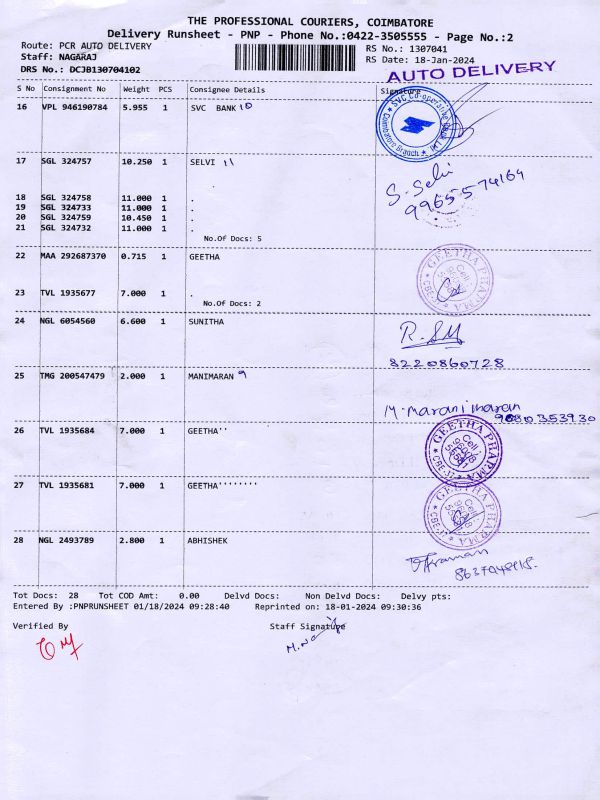 THE PROFESSIONAL COURIERS, COIMBATORE
Delivery Runsheet - PNP - Phone No.:0422-3505555 - Page No.:2
Route: PCR AUTO DELIVERY RS No.: 1307041
Staff: NAGARAJ RS Date: 18-Jan-2024
DRS No.: DCJB130704102 AUTO DELIVERY
S No Consignment No Weight PCS Consignee Details Signature
16 VPL 946190784 5.955 1 SVC BANK 10
SVC Co-operative Bank
Coimbatore Branch
17 SGL 324757 10.250 1 SELVI 11
S. Selvi
9965574164
18 SGL 324758 11.000 1 .
19 SGL 324733 11.000 1 .
20 SGL 324759 10.450 1 .
21 SGL 324732 11.000 1 .
No.Of Docs: 5
22 MAA 292687370 0.715 1 GEETHA
GEETHA PHARMA
23 TVL 1935677 7.000 1 .
No.Of Docs: 2
24 NGL 6054560 6.600 1 SUNITHA
8220860728
25 TMG 200547479 2.000 1 MANIMARAN 9
M. Manimaran
26 TVL 1935684 7.000 1 GEETHA''
GEETHA PHARMA
27 TVL 1935681 7.000 1 GEETHA''''''''
GEETHA PHARMA
28 NGL 2493789 2.800 1 ABHISHEK
Tot Docs: 28 Tot COD Amt: 0.00 Delvd Docs: Non Delvd Docs: Delvy pts:
Entered By :PNPRUNSHEET 01/18/2024 09:28:40 Reprinted on: 18-01-2024 09:30:36
Verified By Staff Signature